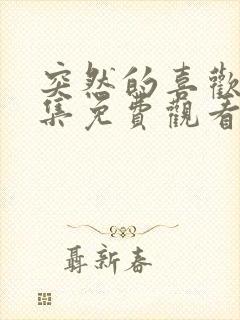 突然的喜歡
集免費觀看
聶新春